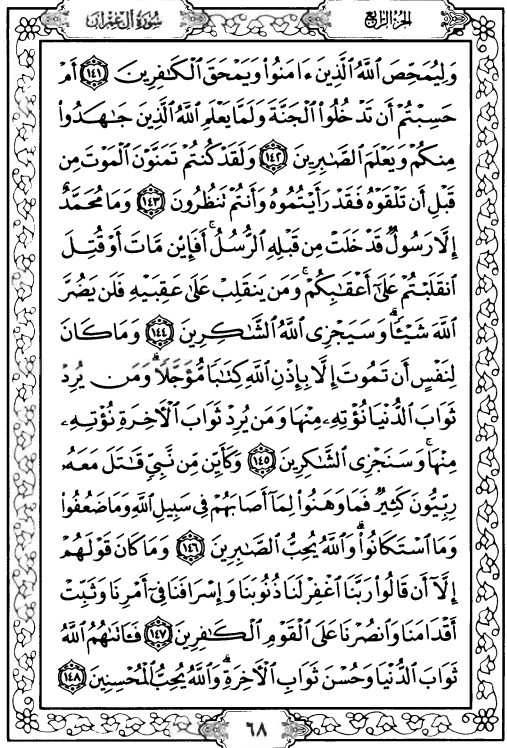 الجزء الرابع
سورة آل عمران
وَلِيُمَحِّصَ ٱللَّهُ ٱلَّذِينَ ءَامَنُوا۟ وَيَمْحَقَ ٱلْكَـٰفِرِينَ ١٤١ أَمْ
حَسِبْتُمْ أَن تَدْخُلُوا۟ ٱلْجَنَّةَ وَلَمَّا يَعْلَمِ ٱللَّهُ ٱلَّذِينَ جَـٰهَدُوا۟
مِنكُمْ وَيَعْلَمَ ٱلصَّـٰبِرِينَ ١٤٢ وَلَقَدْ كُنتُمْ تَمَنَّوْنَ ٱلْمَوْتَ مِن
قَبْلِ أَن تَلْقَوْهُ فَقَدْ رَأَيْتُمُوهُ وَأَنتُمْ تَنظُرُونَ ١٤٣ وَمَا مُحَمَّدٌ
إِلَّا رَسُولٌ قَدْ خَلَتْ مِن قَبْلِهِ ٱلرُّسُلُ ۚ أَفَإِي۟ن مَّاتَ أَوْ قُتِلَ
ٱنقَلَبْتُمْ عَلَىٰٓ أَعْقَـٰبِكُمْ ۚ وَمَن يَنقَلِبْ عَلَىٰ عَقِبَيْهِ فَلَن يَضُرَّ
ٱللَّهَ شَيْـًٔا ۗ وَسَيَجْزِى ٱللَّهُ ٱلشَّـٰكِرِينَ ١٤٤ وَمَا كَانَ
لِنَفْسٍ أَن تَمُوتَ إِلَّا بِإِذْنِ ٱللَّهِ كِتَـٰبًا مُّؤَجَّلًا ۗ وَمَن يُرِدْ
ثَوَابَ ٱلدُّنْيَا نُؤْتِهِۦ مِنْهَا وَمَن يُرِدْ ثَوَابَ ٱلْـَٔاخِرَةِ نُؤْتِهِۦ
مِنْهَا ۚ وَسَنَجْزِى ٱلشَّـٰكِرِينَ ١٤٥ وَكَأَيِّن مِّن نَّبِىٍّ قَـٰتَلَ مَعَهُۥ
رِبِّيُّونَ كَثِيرٌ فَمَا وَهَنُوا۟ لِمَآ أَصَابَهُمْ فِى سَبِيلِ ٱللَّهِ وَمَا ضَعُفُوا۟
وَمَا ٱسْتَكَانُوا۟ ۗ وَٱللَّهُ يُحِبُّ ٱلصَّـٰبِرِينَ ١٤٦ وَمَا كَانَ قَوْلَهُمْ
إِلَّآ أَن قَالُوا۟ رَبَّنَا ٱغْفِرْ لَنَا ذُنُوبَنَا وَإِسْرَافَنَا فِىٓ أَمْرِنَا وَثَبِّتْ
أَقْدَامَنَا وَٱنصُرْنَا عَلَى ٱلْقَوْمِ ٱلْكَـٰفِرِينَ ١٤٧ فَـَٔاتَىٰهُمُ ٱللَّهُ
ثَوَابَ ٱلدُّنْيَا وَحُسْنَ ثَوَابِ ٱلْـَٔاخِرَةِ ۗ وَٱللَّهُ يُحِبُّ ٱلْمُحْسِنِينَ ١٤٨
٦٨